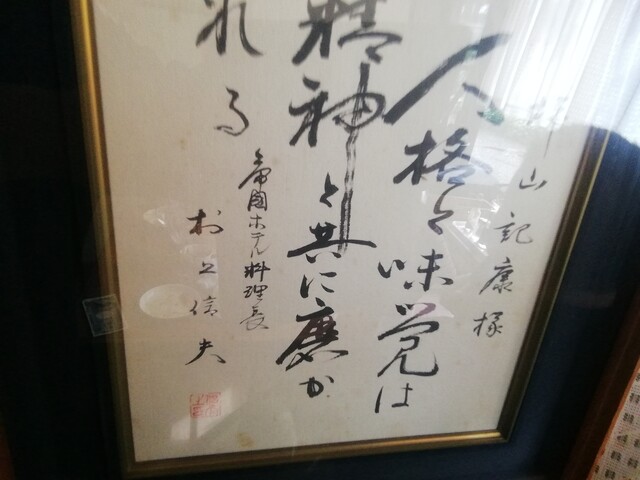 山記康様
人格と味覚は
精神と共に磨か
れる
帝国ホテル料理長
村上信夫